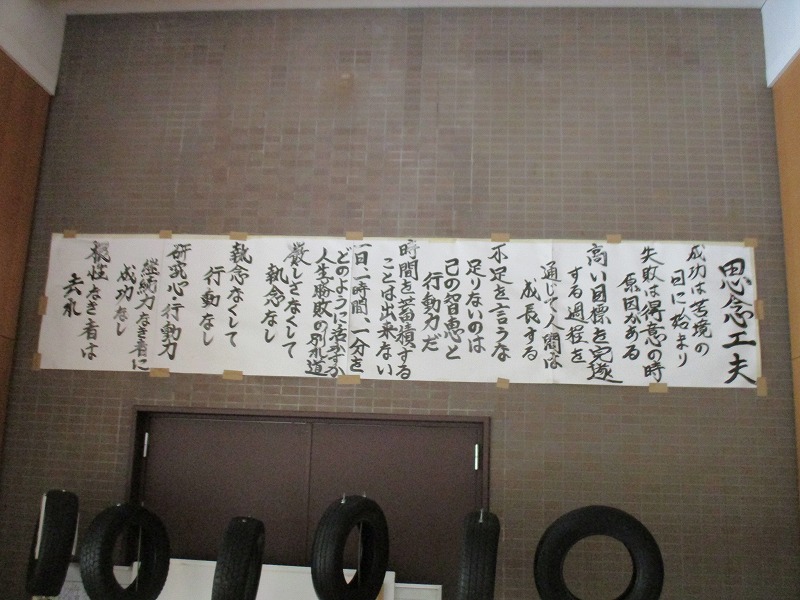 思念工夫
成功は苦境の
日に始まり
失敗は得意の時
原因がある
高い目標を完遂
する過程を
通じて人間は
成長する
不足を言うな
足りないのは
己の智恵と
行動力だ
時間を蓄積する
ことは出来ない
一日、一時間、一分を
どのように活かすか
人生勝敗の別れ道
厳しさなくして
執念なし
執念なくして
行動なし
研究心・行動力
継続力なき者に
成功なし
根性なき者は
去れ